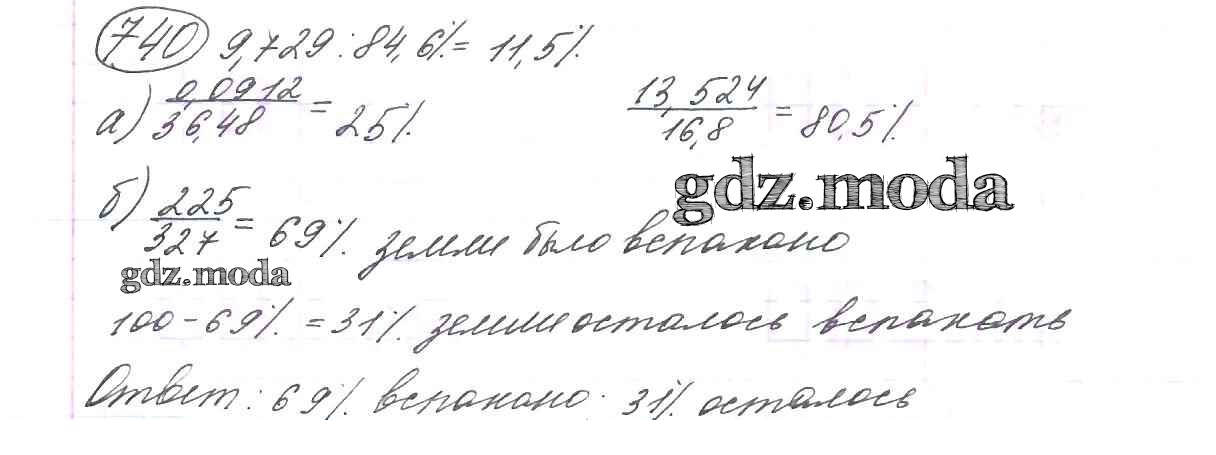 740 9,729 : 84,6% = 11,5%
а) 0,0912/36,48 = 25% 13,524/16,8 = 80,5%
gdz.moda
б) 225/327 = 69% земли было вспахано
gdz.moda
100 - 69% = 31% земли осталось вспахать
Ответ: 69% вспахано. 31% осталось